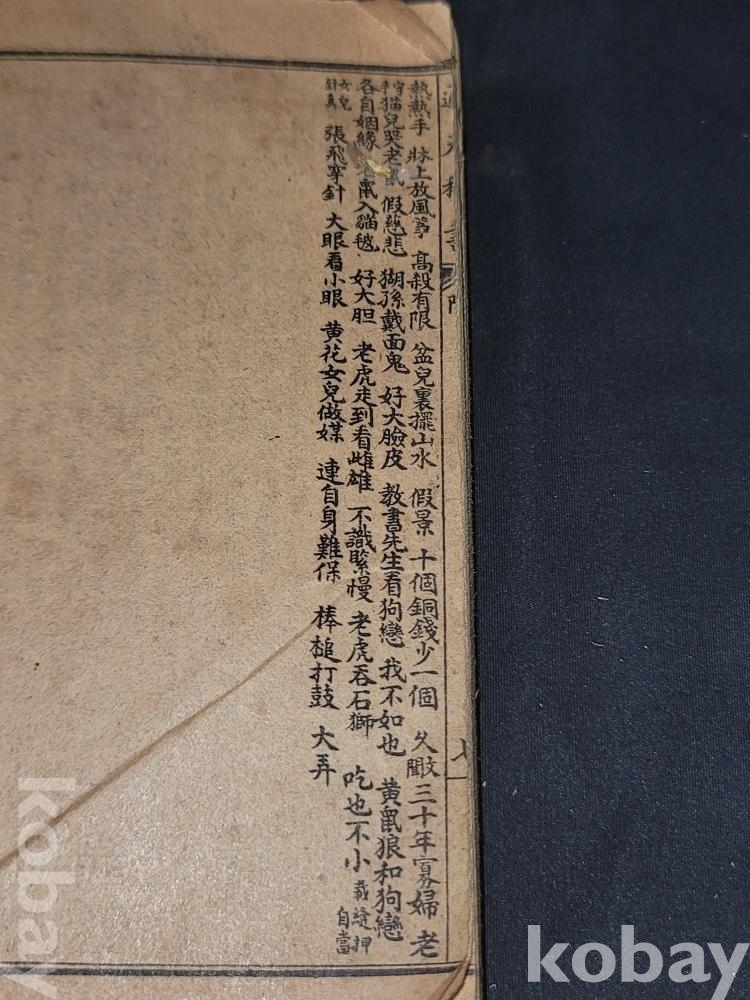 熱熱手 牀上放風箏 高殺有限 盆兒裏擺山水 假景 十個銅錢少一個 久聞 三十年寡婦 老
守手 猫兒哭老鼠 假慈悲 猢孫戴面鬼 好大臉皮 教書先生看狗戀 我不如也 黄鼠狼和狗戀
各自姻緣 老鼠入貓毬 好大胆 老虎走到看雌雄 不識緊慢 老虎吞石獅 吃也不小 裁縫押自當
女兒針真 張飛穿針 大眼看小眼 黄花女兒做媒 連自身難保 棒槌打鼓 大弄
kobay
kobay